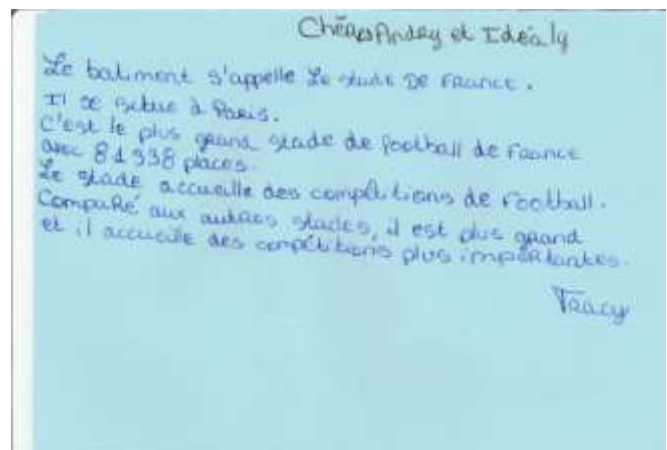 Chères Andry et Idéaly
Le batiment s'appelle Le stade De France.
Il se situe à Paris.
C'est le plus grand stade de football de France
avec 81338 places.
Le stade accueille des compétitions de Football.
Comparé aux autres stades, il est plus grand
et il accueille des compétitions plus importantes.
Tracy